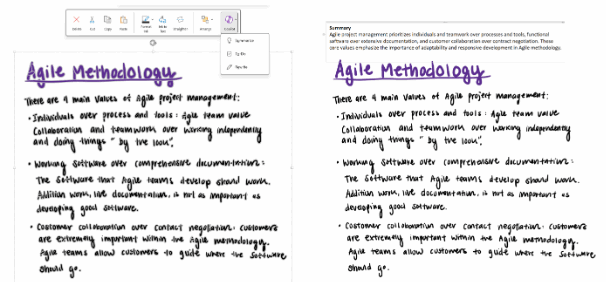 Agile Methodology
There are 4 main values of Agile project management:
• Individuals over process and tools: Agile team value
Collaboration and teamwork over working independently
and doing things "by the book".
• Working Software over comprehensive documentation:
The software that Agile teams develop should work.
Addition work, like documentation, is not as important as
developing good software.
• Customer collaboration over contact negotiation: customers
are extremely important within the Agile methodology.
Agile teams allow customers to guide where the software
should go.
Summary
Agile project management prioritizes individuals and teamwork over processes and tools, functional
software over extensive documentation, and customer collaboration over contract negotiation. These
core values emphasize the importance of adaptability and responsive development in Agile methodology.
Agile Methodology
There are 4 main values of Agile project management:
• Individuals over process and tools: Agile team value
Collaboration and teamwork over working independently
and doing things "by the book".
• Working Software over comprehensive documentation:
The software that Agile teams develop should work.
Addition work, like documentation, is not as important as
developing good software.
• Customer collaboration over contact negotiation: customers
are extremely important within the Agile methodology.
Agile teams allow customers to guide where the software
should go.